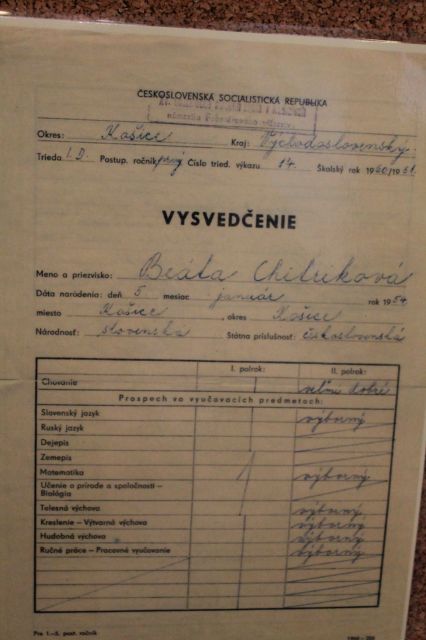 ČESKOSLOVENSKÁ SOCIALISTICKÁ REPUBLIKA
Okres: Košice Kraj: Východoslovenský
Trieda I. D. Postup. ročník prvý Číslo tried. výkazu 14. Školský rok 1960/1961.
VYSVEDČENIE
Meno a priezvisko: Beáta Chitriková
Dáta narodenia: deň 5 mesiac január rok 1954
miesto Košice, okres Košice
Národnosť: slovenská Štátna príslušnosť: československá
I. polrok: II. polrok:
Chovanie veľmi dobré
Prospech vo vyučovacích predmetoch:
Slovenský jazyk výborný
Ruský jazyk
Dejepis
Zemepis
Matematika výborný
Učenie o prírode a spoločnosti –
Biológia
Telesná výchova výborný
Kreslenie – Výtvarná výchova výborný
Hudobná výchova výborný
Ručné práce – Pracovné vyučovanie výborný
Pre 1.–5. post. ročník